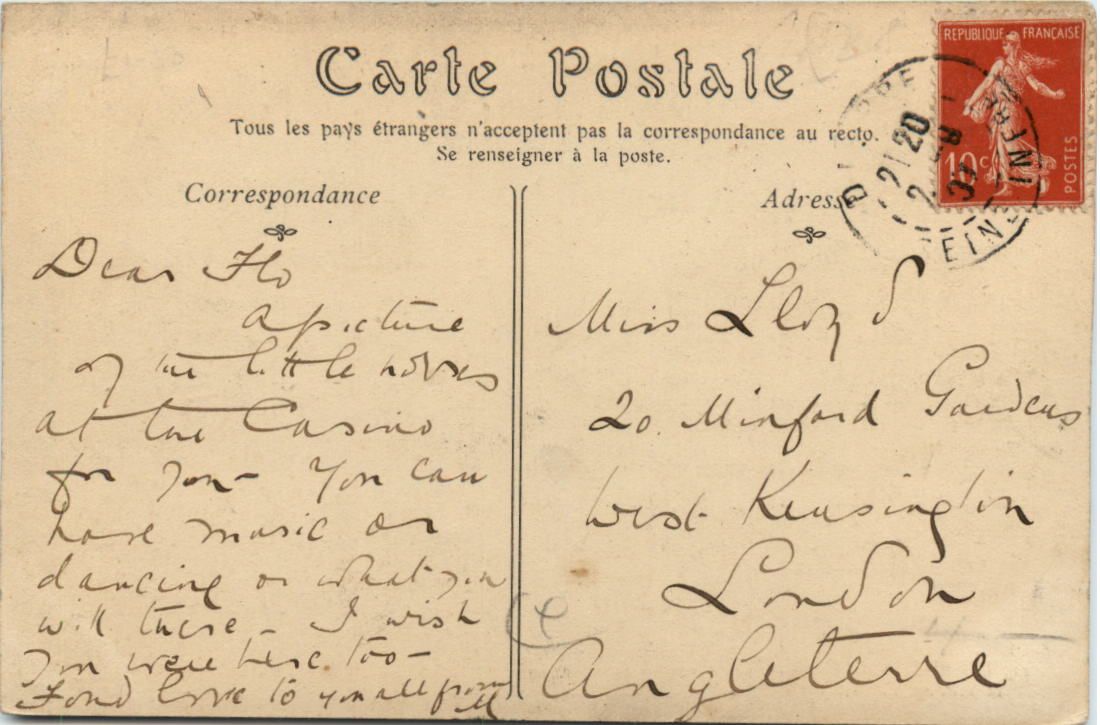 Carte Postale
Tous les pays étrangers n'acceptent pas la correspondance au recto.
Se renseigner à la poste.
Correspondance
Dear Flo
A picture
of the little horses
at the Casino
for you – You can
have music or
dancing or what you
will there – I wish
you were here too –
Fond love to you all from
Adresse
Miss Lloyd
20. Minford Gardens
West Kensington
London
Angleterre
REPUBLIQUE FRANÇAISE
10c
POSTES
DIEPPE
SEINE INFRE
20
09